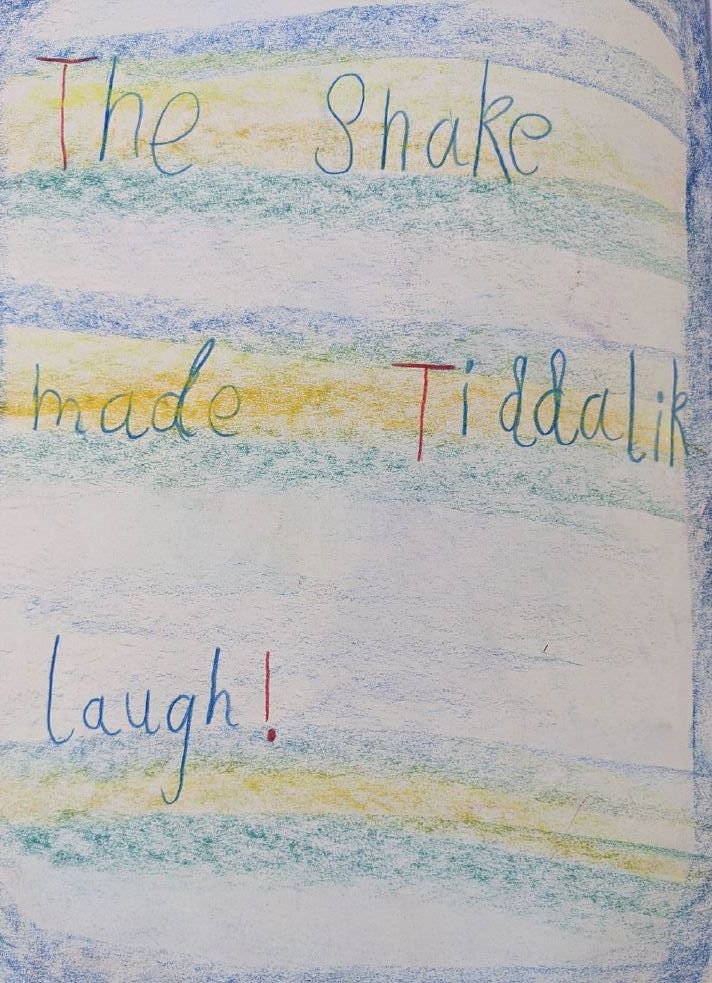 The Snake
made Tiddalik
laugh!